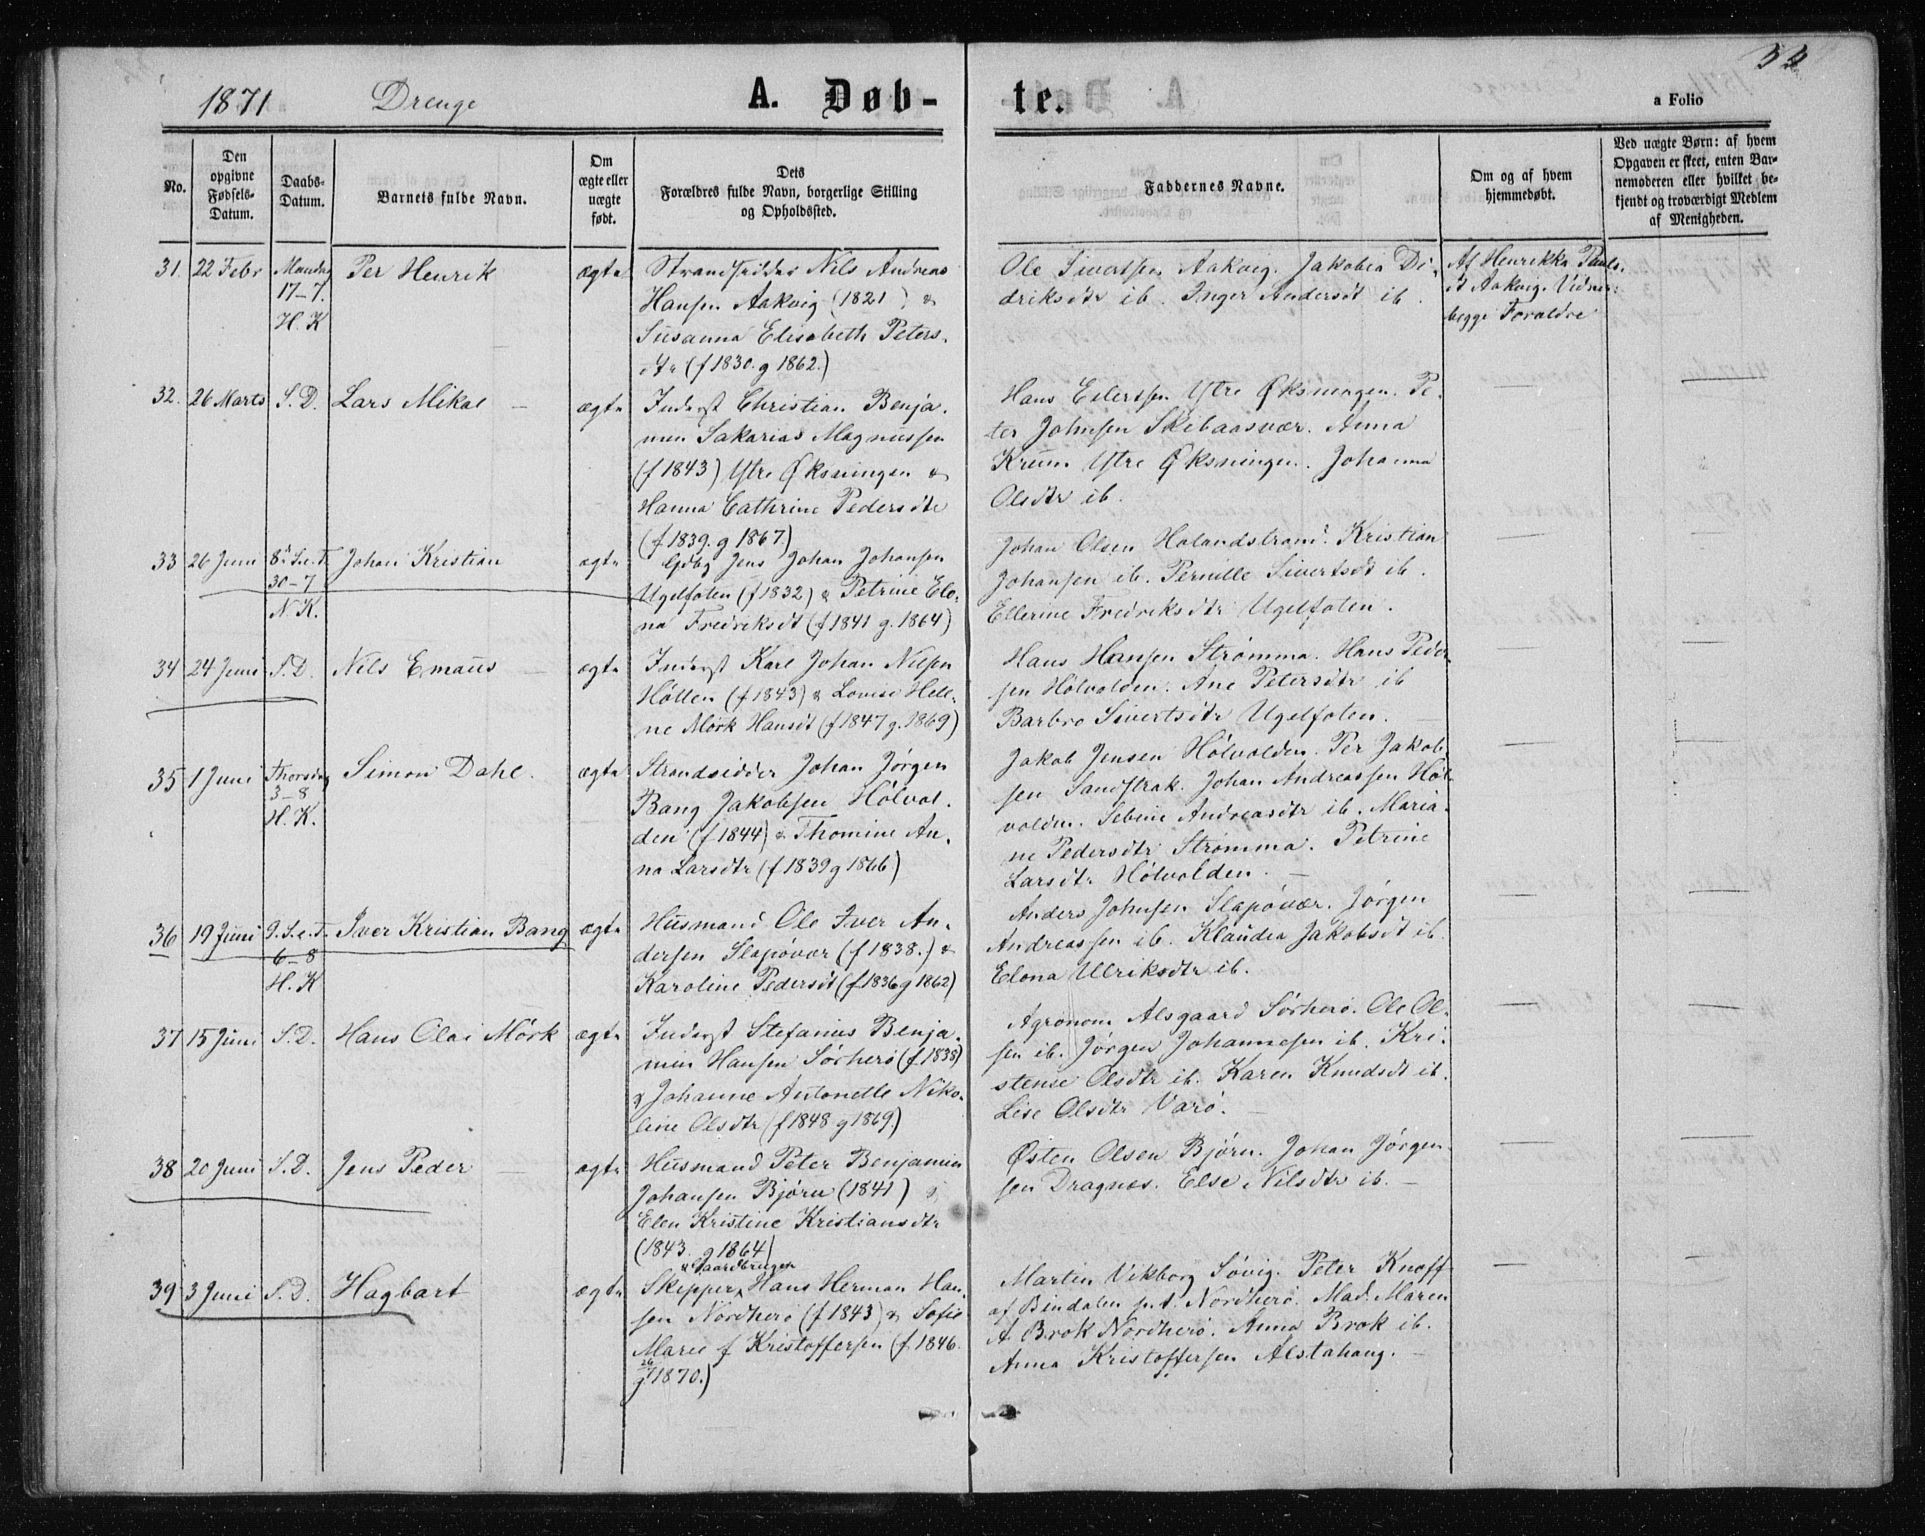 1871 Drenge A. Døb-
te.
33
a Folio
No.
Den
opgivne
Fødsels-
Datum.
Daabs-
Datum.
Barnets fulde Navn.
Om
ægte eller
uægte
født.
Dets
Forældres fulde Navn, borgerlige Stilling
og Opholdssted.
Faddernes Navne.
Om og af hvem
hjemmedøbt.
Ved uægte Børn: af hvem
Opgaven er skeet, enten Bar-
nemoderen eller hvilket be-
kjendt og troværdigt Medlem
af Menigheden.
31. 22 Febr Mandag
17-7.
H. K
Per Henrik
ægte
Strandsidder Nils Andreas
Hansen Aakvig (1821) &
Susanna Elisabeth Peters.
dtr (f 1830. g 1862.)
Ole Sivertsen Aakvig. Jakobea Di-
driksdtr ib. Inger Andersdt ib.
Af Henrikka Pauls-
dt Aakvig. Vidner:
begge Forældre
32. 26 Marts S. D. Lars Mikal —
ægte
Inderst Christian Benja.
men Sakarias Magnussen
(f 1843) Ytre Øksningen &
Hanna Cathrine Pedersdtr
(f 1839. g 1867.)
Hans Eilertsen Ytre Øksningen. Pe-
ter Johnsen Skibaasvær. Anna
Krum Ytre Øksningen. Johanna
Olsdtr ib.
33 26 Juni 8. S. e. T.
30-7
N. K.
Johan Kristian
ægte
Gdbg Jens Johan Johansen
Ugelfoten (f 1832) & Petrine Elo-
na Fredriksdt (f 1841 g. 1864)
Johan Olsen Holandstrand. Kristian
Johansen ib. Pernille Sivertsdt ib.
Ellerine Fredriksdtr Ugelfoten.
34 24 Juni S. D. Nils Emaus —
ægte
Inderst Karl Johan Nilsen
Holten (f 1843) & Lovise Hele-
ne Mørk Hansdt (f 1847 g. 1869)
Hans Hansen Strømma. Hans Peder-
sen Hølvolden. Ane Petersdtr ib
Barbro Sivertsdtr Ugelfoten.
35 1 Juni Thorsdag
3-8
H. K.
Simon Dahl.
ægte
Strandsidder Johan Jørgen
Bang Jakobsen Hølvol.
den (f 1844) & Thomine An.
na Larsdtr (f 1839 g 1866)
Jakob Jensen Hølvolden. Per Jakob-
sen Sandstrak. Johan Andreassen Høl-
volden. Sebine Andreasdtr ib. Maria.
ne Pedersdtr Strømma. Petrine
Larsdtr Hølvolden. —
36 19 Juni 9. S. e. T.
6-8
H. K
Iver Kristian Bang
ægte
Husmand Ole Iver An.
dersen Slapøvær (f 1838.) &
Karoline Pedersdt (f 1836 g 1862)
Anders Johnsen Slapøvær. Jørgen
Andreassen ib. Klaudia Jakobsdt ib.
Elona Ulriksdtr ib.
37 15 Juni S. D. Hans Olai Mørk
ægte
Inderst Stefanus Benja.
min Hansen Sørherø (f. 1838)
& Johanne Antonette Niko-
line Olsdtr (f 1848 g 1869.)
Agronom Alsgaard Sørherø. Ole Ol-
sen ib. Jørgen Johannesen ib. Kri-
stense Olsdtr ib. Karen Knudsdt ib.
Lise Olsdtr Varø. —
38 20 Juni S. D. Jens Peder —
ægte
Husmand Peter Benjamin
Johansen Bjørn (1841) &
Elen Kristine Kristiansdtr
(1843. g 1864)
Østen Olsen Bjørn. Johan Jørgen-
sen Dragnes. Else Nilsdtr ib. —
39 3 Juni S. D. Hagbart
ægte
& Gaardbruger
Skipper Hans Herman Han.
sen Nordherø (f 1843) & Sofie
Marie f Kristoffersen (f. 1846.
g 26 1870.)
Martin Vikborg Søvig. Peter Knoff
af Bindalen p.t. Nordherø. Mad. Maren
A. Brok Nordherø. Anna Brok ib.
Anna Kristoffersen Alstahaug. —